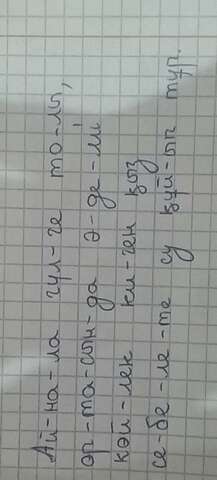 Ай-на-ла гүл-ге то-лы,
ор-та-сын-да ә-де-мі
көй-лек ки-ген қыз
се-бе-ле-те су құй-ып тұр.